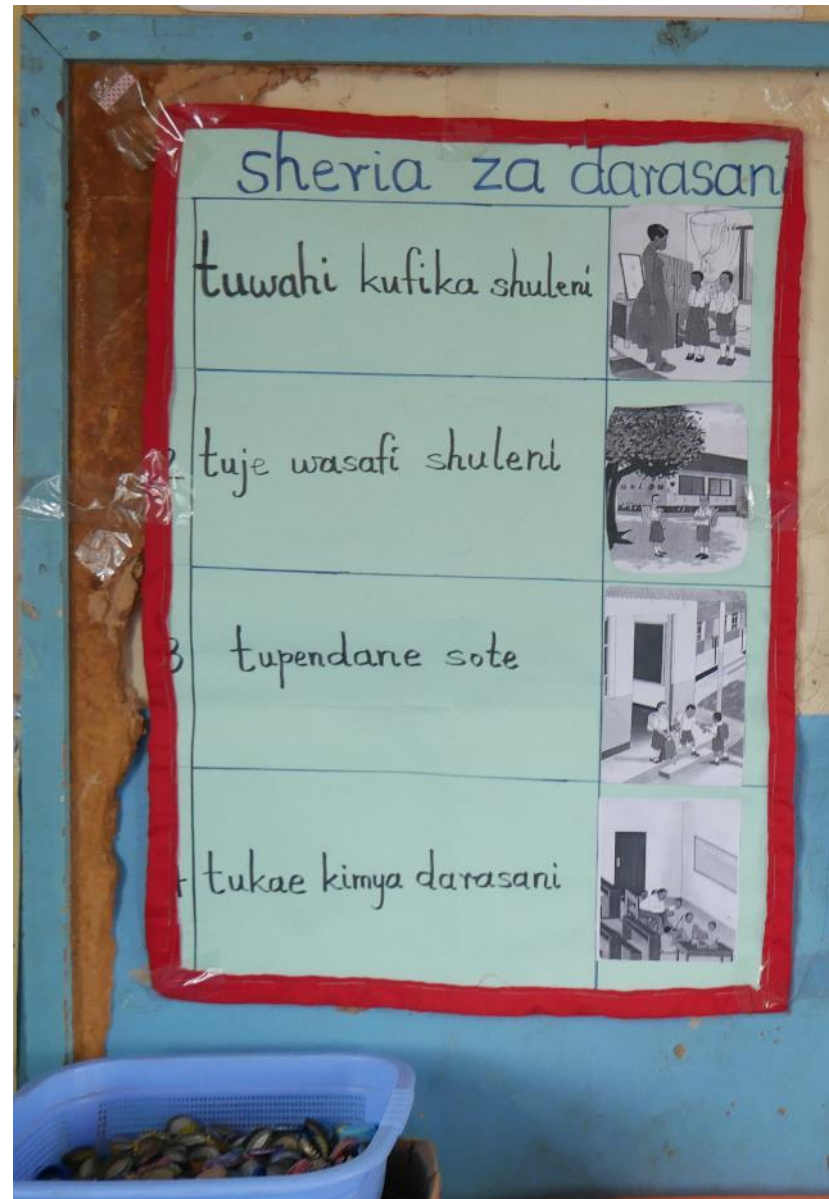 sheria za darasani
tuwahi kufika shuleni
2 tuje wasafi shuleni
3 tupendane sote
tukae kimya darasani